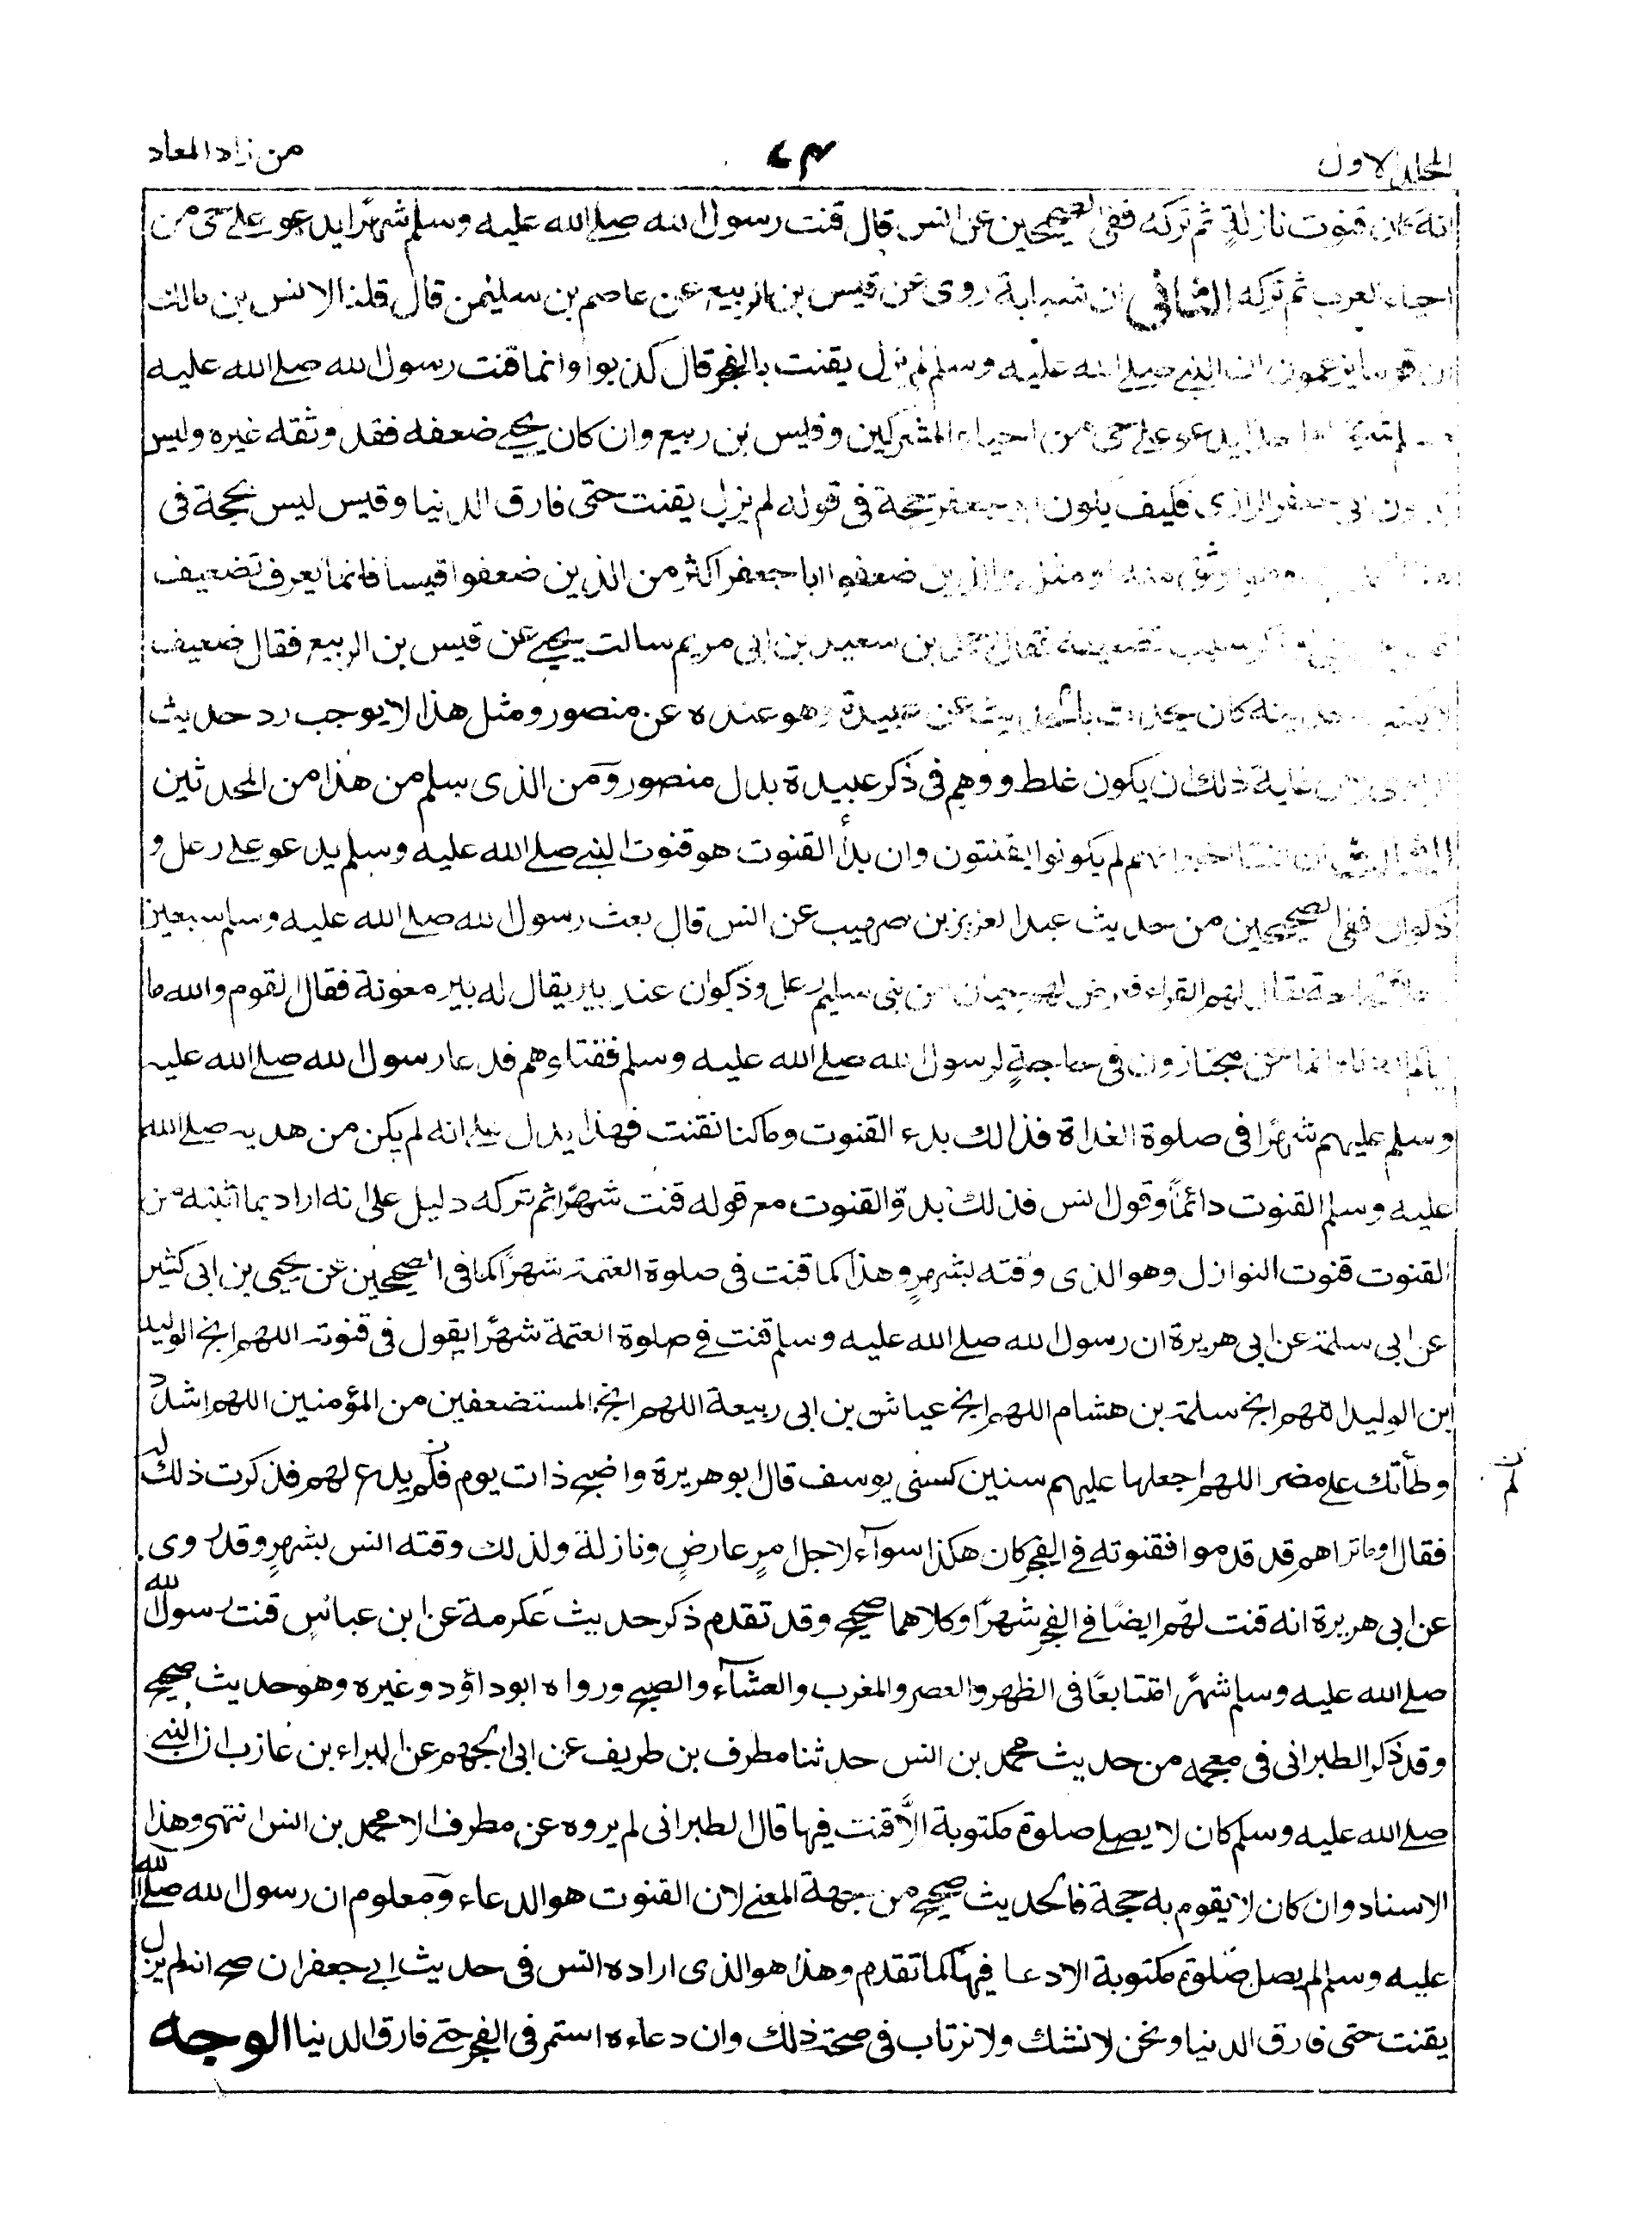 المجلد الاول
٧٣
من زاد المعاد
انه كان قنوت نازلةٍ ثم تركه ففى الصحيحين عن انس قال قنت رسول الله صلے الله عليه وسلم شهرًا يدعو علے حى من
احياء العرب ثم تركه الثانى ان شبابة روى عن قيس بن الربيع عن عاصم بن سليمٰن قال قلنا لانس بن مالك
ان قوما يزعمون ان النبى صلے الله عليه وسلم لم يزل يقنت بالفجر قال كذبوا وانما قنت رسول الله صلے الله عليه
يدعو علے حى من احياء المشركين وقيس بن ربيع وان كان يحيى ضعفه فقد وثقه غيره وليس
بدون ابى جعفر الرازى فكيف يكون ابو جعفر حجة فى قوله لم يزل يقنت حتى فارق الدنيا وقيس ليس بحجة فى
اوثق منه او مثله والذين ضعفوا ابا جعفر اكثر من الذين ضعفوا قيسا فانما يعرف تضعيف
سبب تضعيفه فقال احمد بن سعيد بن ابى مريم سالت يحيے عن قيس بن الربيع فقال ضعيف
لا يكتب حديثه كان يحدث بالحديث عن عبيدة وهو عنده عن منصور ومثل هذا لا يوجب رد حديث
الراوى لان غاية ذلك ان يكون غلط ووهم فى ذكر عبيدة بدل منصور ومن الذى يسلم من هذا من المحدثين
الثالث ان انسا اخبر انهم لم يكونوا يقنتون وان بدأ القنوت هو قنوت النبى صلے الله عليه وسلم يدعو علے رعل و
ذكوان ففى الصحيحين من حديث عبد العزيز بن صهيب عن انس قال بعث رسول الله صلے الله عليه وسلم سبعين
لحاجة يقال لهم القراء فعرض لهم حيان من بنى سليم رعل وذكوان عند بير يقال له بير معونة فقال القوم والله ما
اياكم اردنا وانما نحن مجتازون فى حاجةٍ لرسول الله صلے الله عليه وسلم فقتلوهم فدعا رسول الله صلے الله عليه
وسلم عليهم شهرًا فى صلوة الغداة فذالك بدء القنوت وما كنا نقنت فهذا يدل علے انه لم يكن من هديه صلے الله
عليه وسلم القنوت دائماً وقول انس فذلك بدؤ القنوت مع قوله قنت شهرًا ثم تركه دليل على انه اراد بما اثبته من
القنوت قنوت النوازل وهو الذى وقته بشهرٍ وهذا كما قنت فى صلوة العتمة شهرًا كما فى الصحيحين عن يحيى بن ابى كثير
عن ابى سلمة عن ابى هريرة ان رسول الله صلے الله عليه وسلم قنت فے صلوة العتمة شهرًا يقول فى قنوته اللهم انج الوليد
ابن الوليد اللهم انج سلمة بن هشام اللهم انج عياش بن ابى ربيعة اللهم انج المستضعفين من المؤمنين اللهم اشدد
وطأتك علے مضر اللهم اجعلها عليهم سنين كسنى يوسف قال ابو هريرة واصبح ذات يوم فلم يدع لهم فذكرت ذلك له
فقال اوما تراهم قد قدموا فقنوته فے الفجر كان هكذا سوآء لاجل امرٍ عارضٍ ونازلة ولذلك وقته انس بشهرٍ وقد روى
عن ابى هريرة انه قنت لهم ايضًا فے الفجر شهرًا وكلاهما صحيح وقد تقدم ذكر حديث عكرمة عن ابن عباس قنت رسول الله
صلے الله عليه وسلم شهرًا متتابعًا فى الظهر والعصر والمغرب والعشآء والصبح ورواه ابو داؤد وغيره وهو حديث صحيح
وقد ذكر الطبرانى فى معجمه من حديث محمد بن انس حدثنا مطرف بن طريف عن ابى الجهم عن البراء بن عازب ان النبى
صلے الله عليه وسلم كان لا يصلے صلوة مكتوبة الّا قنت فيها قال الطبرانى لم يروه عن مطرف الا محمد بن انس انتهى وهذا
الاسناد وان كان لا يقوم به حجة فالحديث صحيح من جهة المعنے لان القنوت هو الدعاء ومعلوم ان رسول الله صلے الله
عليه وسلم لم يصل صلوة مكتوبة الا دعا فيها كما تقدم وهذا هو الذى اراده انس فى حديث ابى جعفر ان صح انه لم يزل
يقنت حتى فارق الدنيا ونحن لا نشك ولا نرتاب فى صحة ذلك وان دعاءه استمر فى الفجر حتے فارق الدنيا الوجه